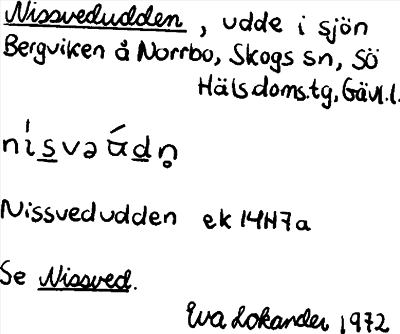 Nissvedudden, udde i sjön
Bergviken å Norrbo, Skogs sn, Sö
Hälsdoms.tg, Gävl.l.
Nissvedudden ek 14H7a
Se Nissved.
Eva Lokander 1972